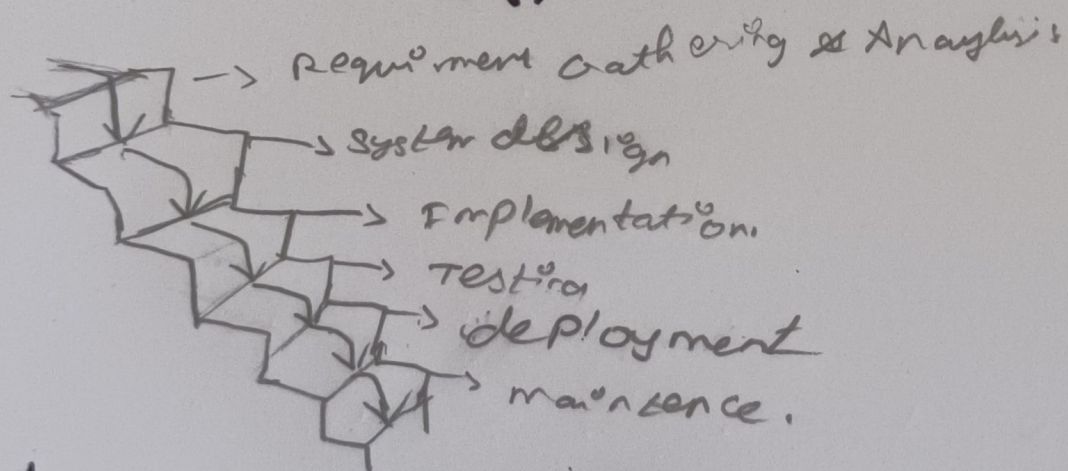 Requirment Gathering & Anaylisis
System design
Implementation.
Testing
deployment
maintence.